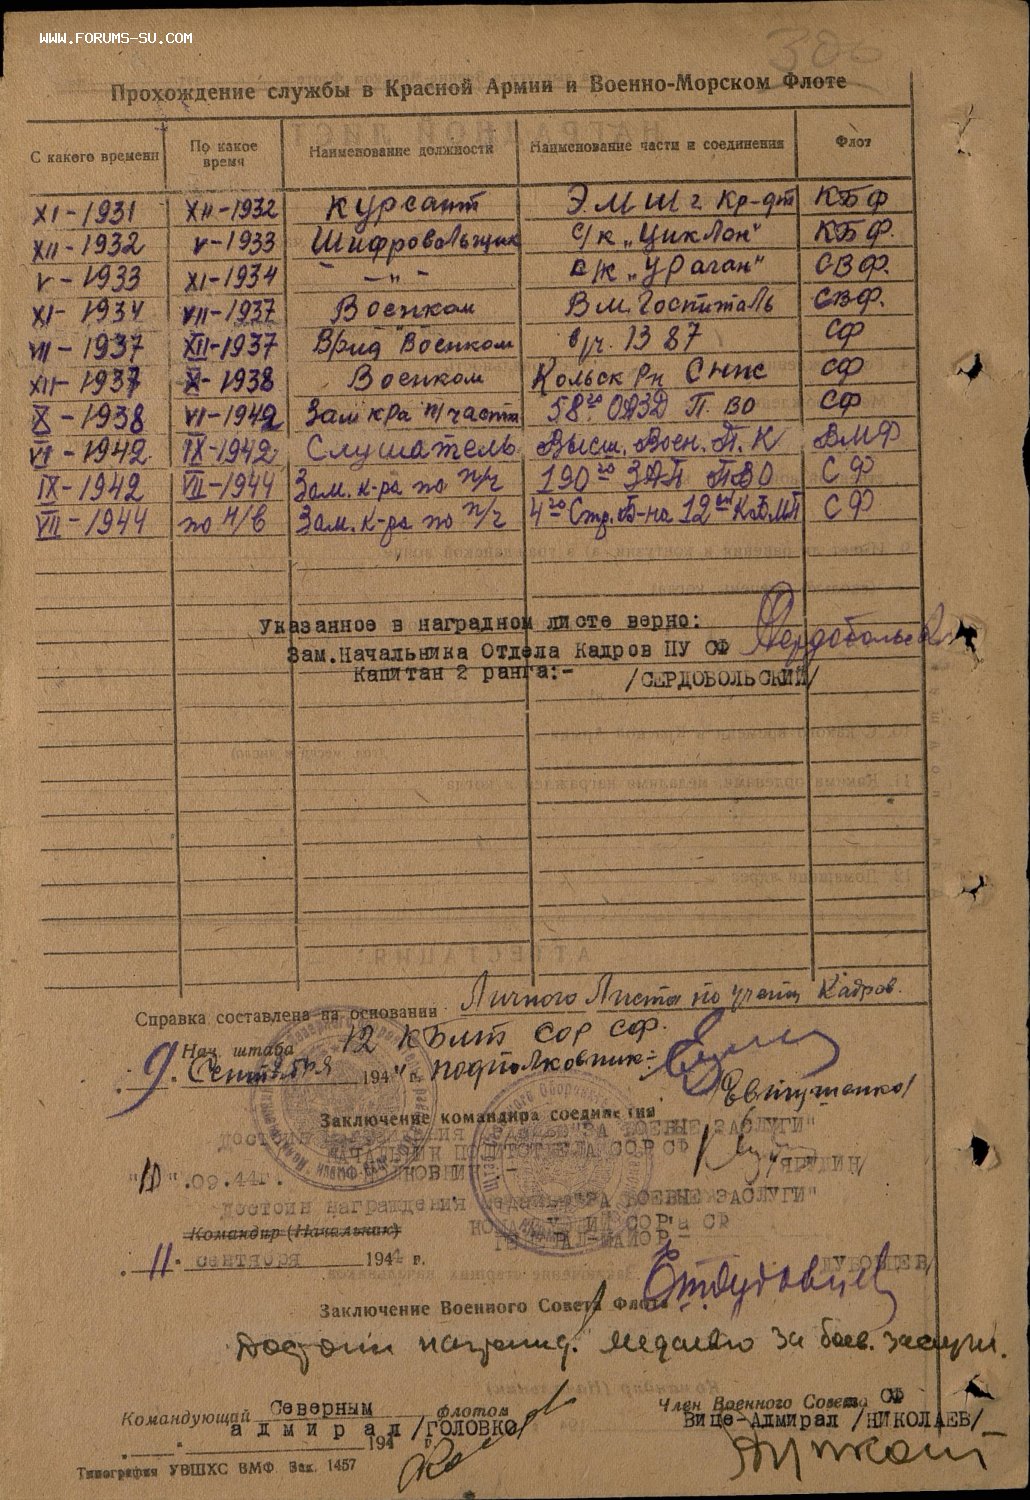 WWW.FORUMS-SU.COM
Прохождение службы в Красной Армии и Военно-Морском Флоте
С какого времени По какое время Наименование должности Наименование части и соединения Флот
XI-1931 XII-1932 Курсант Э.М.Ш г. Кр-дт КБФ
XII-1932 V-1933 Шифровальщик с/к „Циклон" КБФ.
V-1933 XI-1934 -„- с/к „Ураган" СВФ.
XI-1934 VII-1937 Военком В м. Госпиталь СВФ.
VII-1937 XII-1937 Врид Военком в/ч. 1387 СФ
XII-1937 X-1938 Военком Кольск Рн СНиС СФ
X-1938 VI-1942 Зам к-ра п/части 58го ОАЗД П. ВО СФ
VI-1942 IX-1942 Слушатель Высш. Воен. П. К ВМФ
IX-1942 VII-1944 Зам. к-ра по п/ч 190го ЗАП ПВО СФ
VII-1944 по н/в Зам. к-ра по п/ч 4го Стр. Б-на 12ой КБМП СФ
Указанное в наградном листе верно:
Зам.Начальника Отдела Кадров ПУ СФ
Капитан 2 ранга:- /СЕРДОБОЛЬСКИЙ/
Справка составлена на основании Личного Листа по учету Кадров.
Нач. штаба 12 КБМП СОР СФ.
9. Сентября 194 г. подполковник:-
/Евтушенко/
Заключение командира соединения
Достоин награждения "ЗА БОЕВЫЕ ЗАСЛУГИ"
НАЧАЛЬНИК ПОЛИТОТДЕЛА СОР СФ
"10".09.44г.
достоин награждения медалью "ЗА БОЕВЫЕ ЗАСЛУГИ"
Командир (Начальник) КОМАНДУЮЩИЙ СОР'а СФ
ГЕНЕРАЛ-МАЙОР -
11. сентября 1944 г. ДУБОВЦЕВ/
Заключение Военного Совета Флота
Достоин награжд. медалью за боев. заслуги.
Командующий Северным флотом
адмирал /ГОЛОВКО/
194 г.
Член Военного Совета СФ
Вице-Адмирал /НИКОЛАЕВ/
Типография УВШХС ВМФ. Зак. 1457